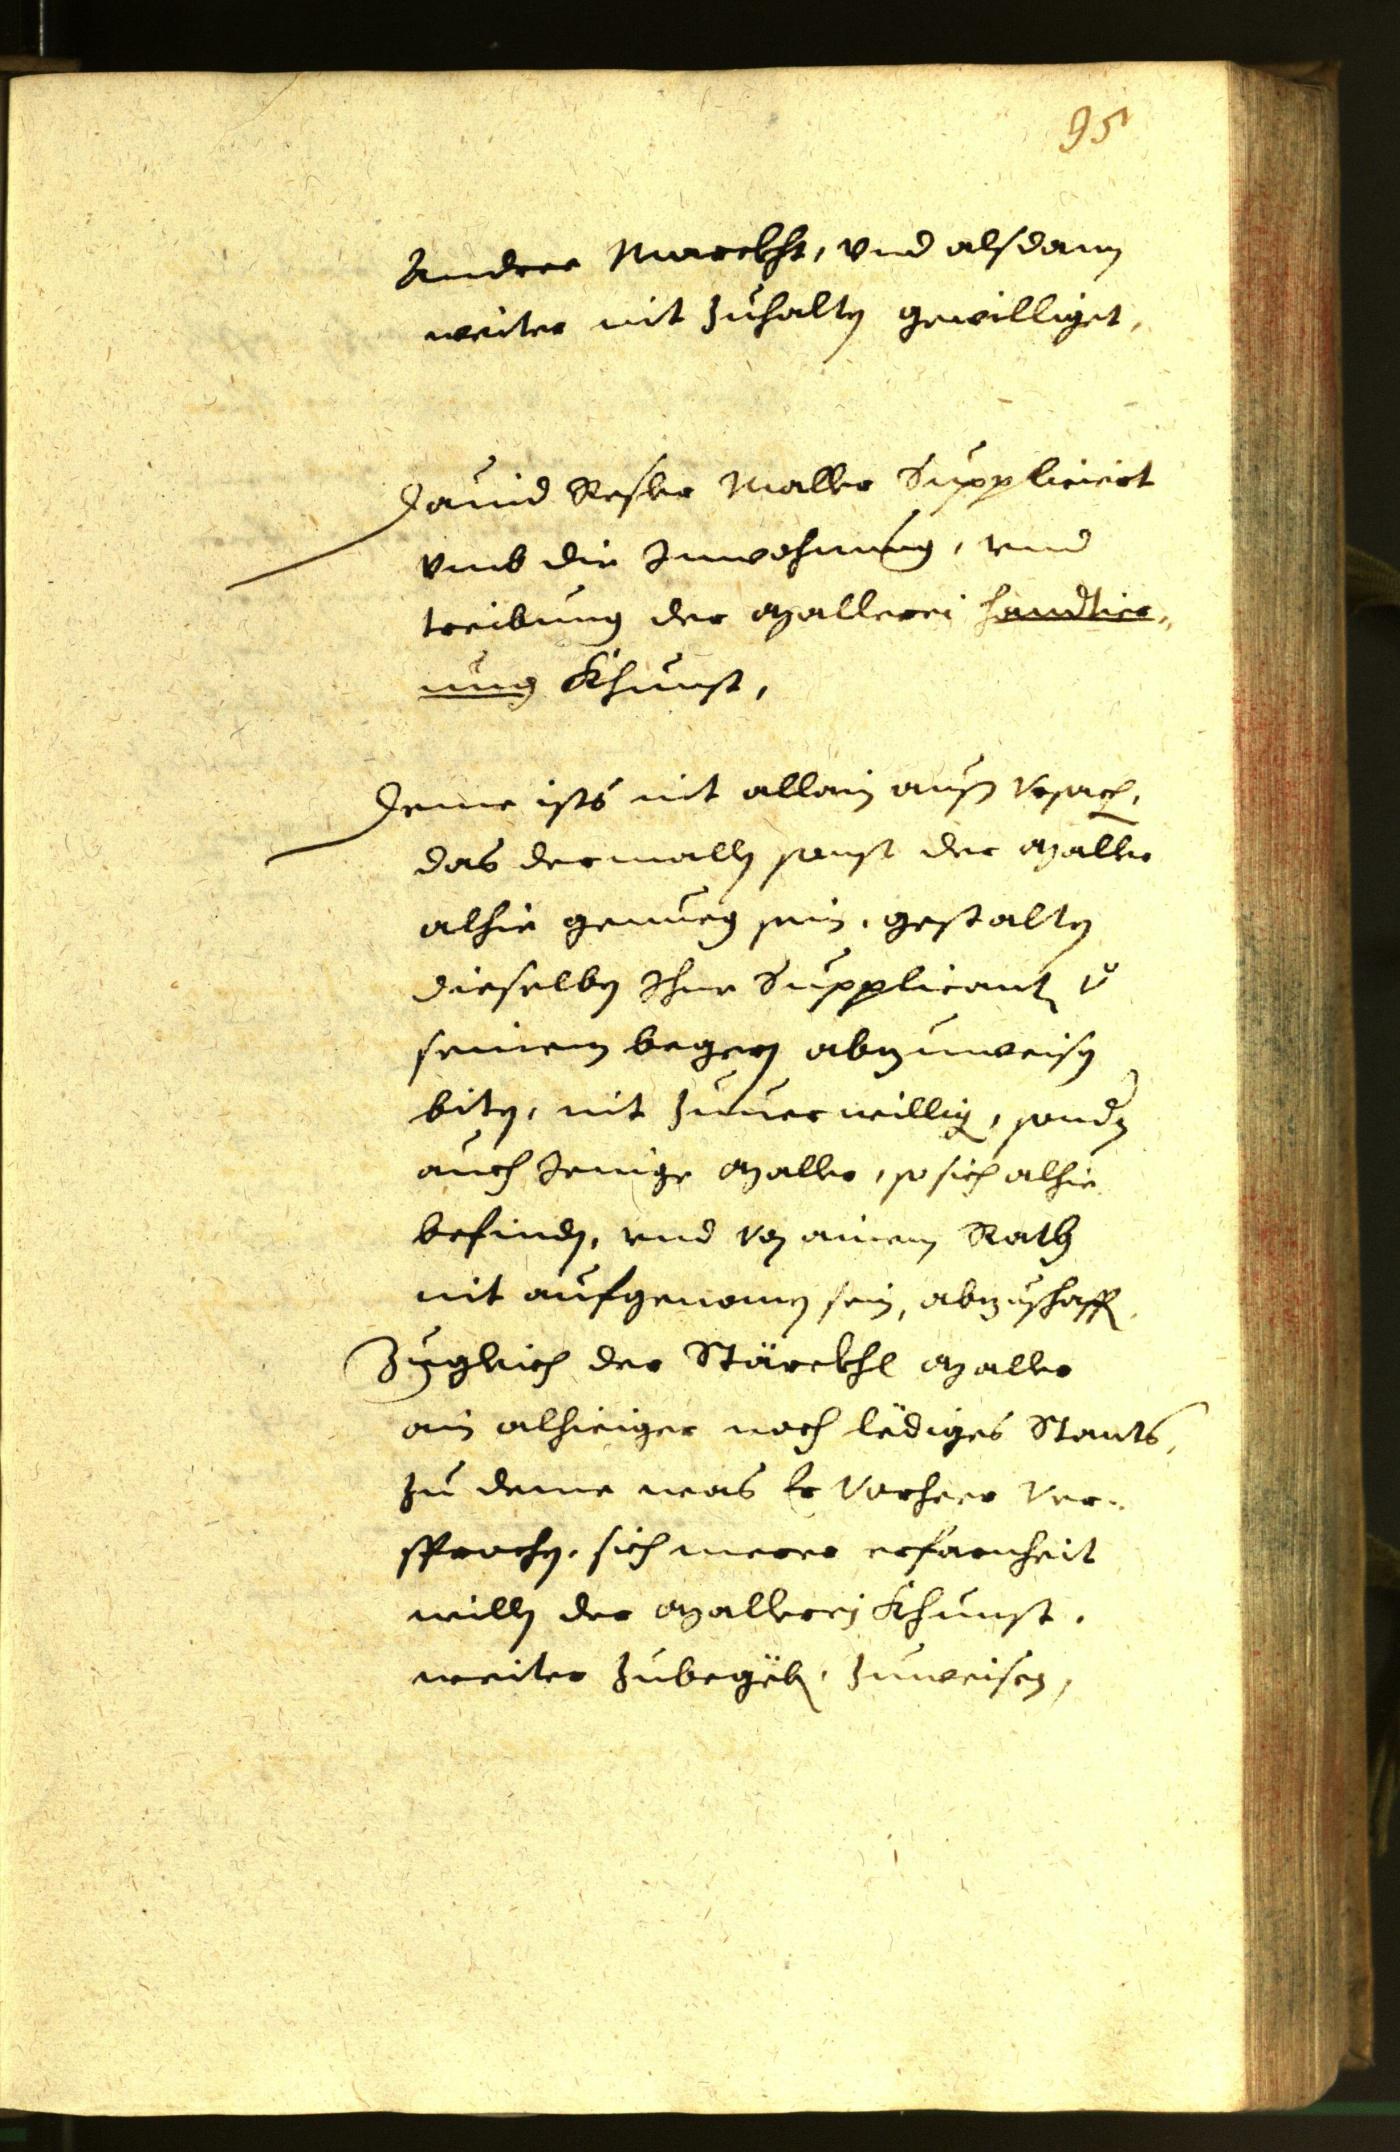 95
Andree Marckht, vnd alsdann
weiter nit zuhalten gewilliget,
Dauid Resler Maller Suppliciert
vmb die Inwohnung, vnd
treibung der Mallerei handtier„
ung Khunst,
Deme ists nit allain auß Vrsach,
das dermallen sonst der Maller
alhie genueg sein, gestalten
dieselben Ihne Supplicanten v
seinem begern abzuweisen
biten, nit zuuerwilligen, sondern
auch Jenige Maller, so sich alhie
befinden, vnd von ainem Rath
nit aufgenomen sein, abzuschaffen
Zugleich der Stärckhl Maller
ain alhieiger noch lediges Stants,
zu deme was Er Vorheer Ver„
sprochen, sich merer erfarnheit
willen der Mallerej Khunst,
weiter zubegeben, zuweisen,